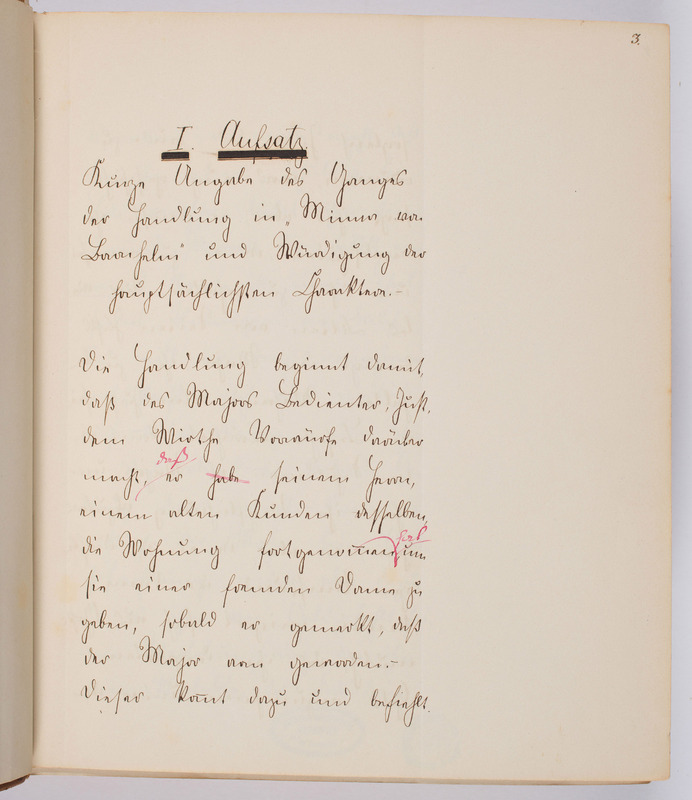 3.
I. Aufsatz.
Kurze Angabe des Ganges
der Handlung in „Minna von
Barnhelm“ und Würdigung der
hauptsächlichsten Charaktere.–
Die Handlung beginnt damit,
daß des Majors Bedienter, Just,
dem Wirthe Vorwürfe darüber
daß
macht, er habe seinem Herrn,
einem alten Kunden desselben,
hat
die Wohnung fortgenommen, um
sie einer fremden Dame zu
geben, sobald er gemerkt, daß
der Major arm geworden.–
Dieser kommt dazu und befiehlt